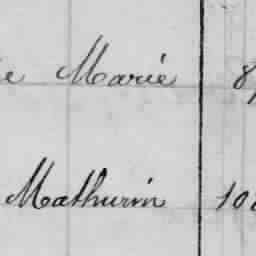 e Marie 8
Mathurin 10